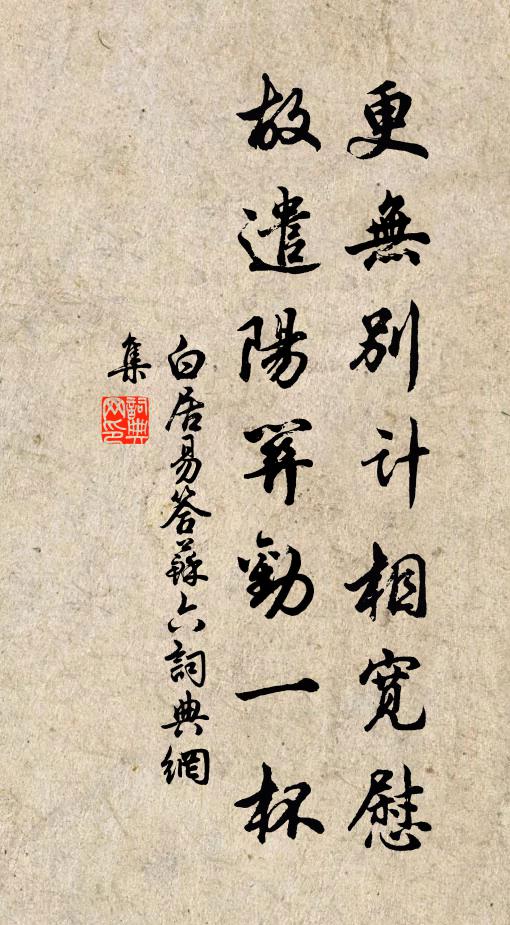 更無別計相寬慰
故遣陽關勸一杯
白居易答蘇六詞典網
集
詞典
網印